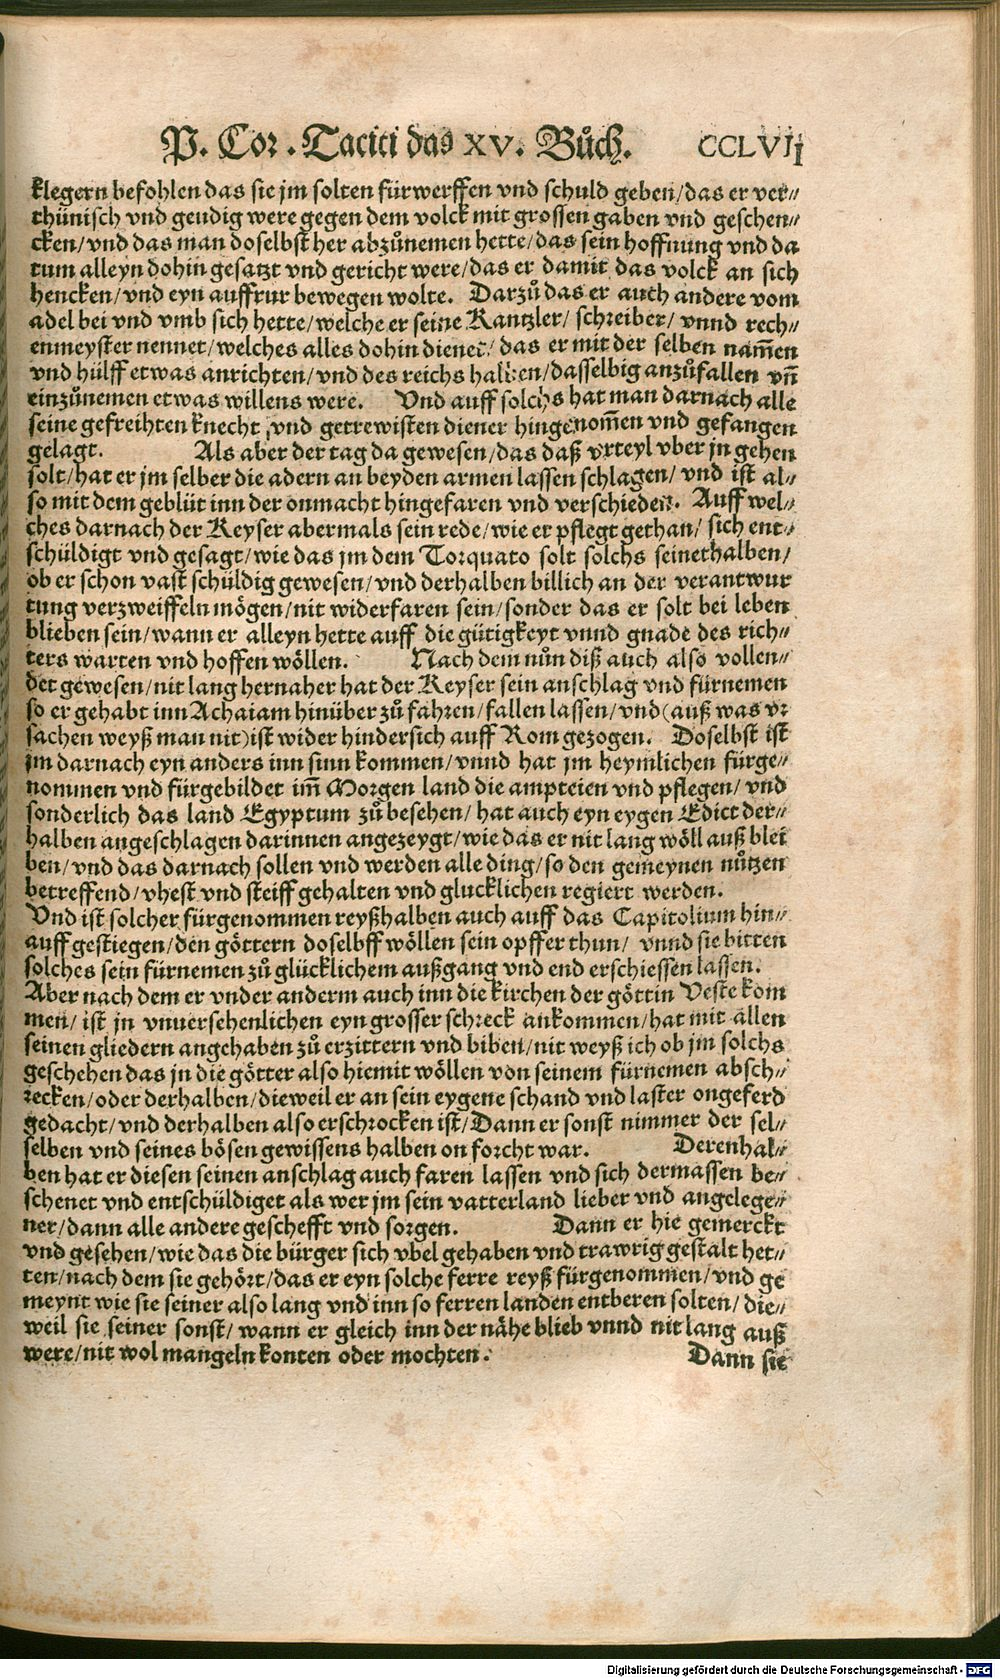 P. Cor. Taciti das XV. Bůch. CCLVII
klegern befohlen das sie jm solten fürwerffen vnd schuld geben/das er ver⸗
thünisch vnd geudig were gegen dem volck mit grossen gaben vnd geschen⸗
cken/vnd das man doselbst her abzůnemen hette/das sein hoffnung vnd da
tum alleyn dohin gesatzt vnd gericht were/das er damit das volck an sich
hencken/vnd eyn auffrur bewegen wolte. Darzů das er auch andere vom
adel bei vnd vmb sich hette/welche er seine Kantzler/ schreiber/ vnnd rech⸗
enmeyster nennet/welches alles dohin dienet/ das er mit der selben nam̃en
vnd hülff etwas anrichten/vnd des reichs halben/dasselbig anzůfallen vñ
einzůnemen etwas willens were. Vnd auff solchs hat man darnach alle
seine gefreihten knecht vnd getrewisten diener hingenom̃en vnd gefangen
gelagt. Als aber der tag da gewesen/das daß vrteyl vber jn gehen
solt/hat er jm selber die adern an beyden armen lassen schlagen/ vnd ist al⸗
so mit dem geblüt inn der onmacht hingefaren vnd verschieden. Auff wel⸗
ches darnach der Keyser abermals sein rede/wie er pflegt gethan/ sich ent⸗
schüldigt vnd gesagt/wie das jm dem Torquato solt solchs seinethalben/
ob er schon vast schüldig gewesen/vnd derhalben billich an der verantwur
tung verzweiffeln mögen/nit widerfaren sein/sonder das er solt bei leben
blieben sein/wann er alleyn hette auff die gütigkeyt vnnd gnade des rich⸗
ters warten vnd hoffen wöllen. Nach dem nůn diß auch also vollen⸗
det gewesen/nit lang hernaher hat der Keyser sein anschlag vnd fürnemen
so er gehabt inn Achaiam hinüber zů fahren/fallen lassen/vnd(auß was vr
sachen weyß man nit)ist wider hindersich auff Rom gezogen. Doselbst ist
jm darnach eyn anders inn sinn kommen/vnnd hat jm heymlichen fürge⸗
nommen vnd fürgebildet im̃ Morgen land die ampteien vnd pflegen/ vnd
sonderlich das land Egyptum zů besehen/ hat auch eyn eygen Edict der⸗
halben angeschlagen darinnen angezeygt/wie das er nit lang wöll auß blei
ben/vnd das darnach sollen vnd werden alle ding/so den gemeynen nůtzen
betreffend/vhest vnd steiff gehalten vnd glucklichen regiert werden.
Vnd ist solcher fürgenommen reyßhalben auch auff das Capitolium hin⸗
auff gestiegen/den göttern doselbff wöllen sein opffer thun/ vnnd sie bitten
solches sein fürnemen zů glücklichem außgang vnd end erschiessen lassen.
Aber nach dem er vnder anderm auch inn die kirchen der göttin Veste kom
men/ ist jn vnuersehenlichen eyn grosser schreck ankommen/hat mit allen
seinen gliedern angehaben zů erzittern vnd biben/nit weyß ich ob jm solchs
geschehen das jn die götter also hiemit wöllen von seinem fürnemen absch⸗
recken/oder derhalben/dieweil er an sein eygene schand vnd laster ongeferd
gedacht/vnd derhalben also erschrocken ist/Dann er sonst nimmer der sel⸗
selben vnd seines bösen gewissens halben on forcht war. Derenhal⸗
ben hat er diesen seinen anschlag auch faren lassen vnd sich dermassen be⸗
schenet vnd entschüldiget als wer jm sein vatterland lieber vnd angelege⸗
ner/dann alle andere geschefft vnd sorgen. Dann er hie gemerckt
vnd gesehen/wie das die bürger sich vbel gehaben vnd trawrig gestalt het⸗
ten/nach dem sie gehört/das er eyn solche ferre reyß fürgenommen/vnd ge
meynt wie sie seiner also lang vnd inn so ferren landen entberen solten/ die⸗
weil sie seiner sonst/ wann er gleich inn der nähe blieb vnnd nit lang auß
were/nit wol mangeln konten oder mochten. Dann sie
Digitalisierung gefördert durch die Deutsche Forschungsgemeinschaft - DFG